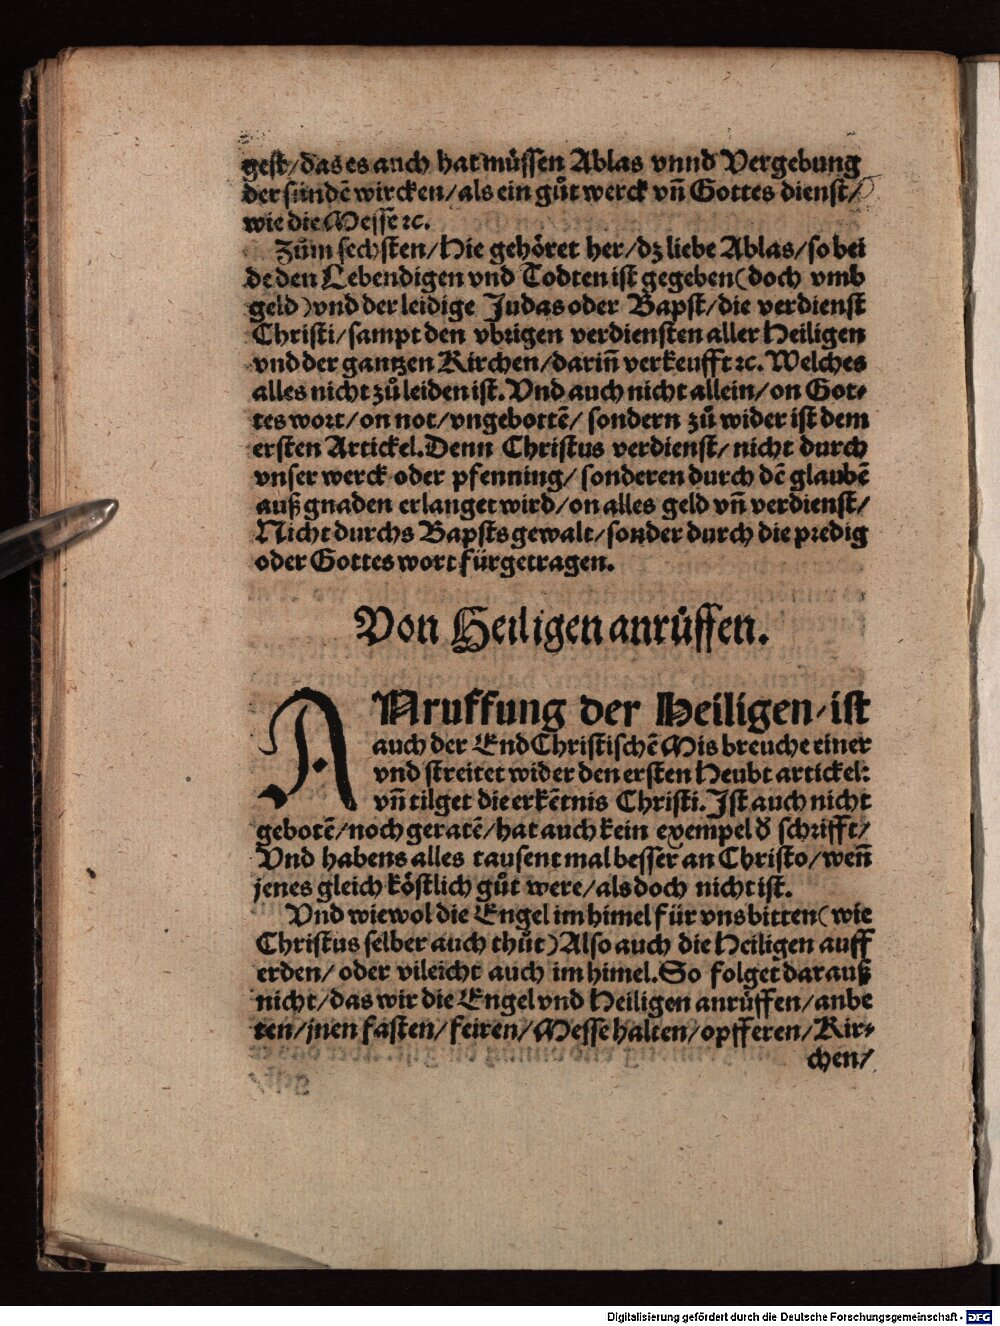 gest/das es auch hat müssen Ablas vnnd Vergebung
der sundē wircken/als ein gůt werck vñ Gottes dienst/
wie die Messe ꝛc.
Zům sechsten/Hie gehöret her/dz liebe Ablas/so bei
de den Lebendigen vnd Todten ist gegeben(doch vmb
geld)vnd der leidige Judas oder Bapst/die verdienst
Christi/sampt den vbrigen verdiensten aller Heiligen
vnd der gantzen Kirchen/darinñ verkeufft ꝛc. Welches
alles nicht zů leiden ist. Vnd auch nicht allein/on Got⸗
tes wort/on not/vngebottē/sondern zů wider ist dem
ersten Artickel. Denn Christus verdienst/nicht durch
vnser werck oder pfenning/sonderen durch dē glaubē
auß gnaden erlanget wird/on alles geld vñ verdienst/
Nicht durchs Bapsts gewalt/sonder durch die predig
oder Gottes wort fürgetragen.
Von Heiligen anrůffen.
ANruffung der Heiligen/ist
auch der EndChristischē Misbreuche einer
vnd streitet wider den ersten Heubt artickel:
vñ tilget die erkētnis Christi. Ist auch nicht
gebotē/noch geratē/hat auch kein exempel ď schrifft/
Vnd habens alles tausent mal besser an Christo/weñ
jenes gleich köstlich gůt were/als doch nicht ist.
Vnd wiewol die Engel im himel für vns bitten(wie
Christus selber auch thůt)Also auch die Heiligen auff
erden/oder vileicht auch im himel. So folget darauß
nicht/das wir die Engel vnd Heiligen anrůffen/anbe
ten/jnen fasten/feiren/Messe halten/opfferen/Kir⸗
chen/
Digitalisierung gefördert durch die Deutsche Forschungsgemeinschaft - DFG